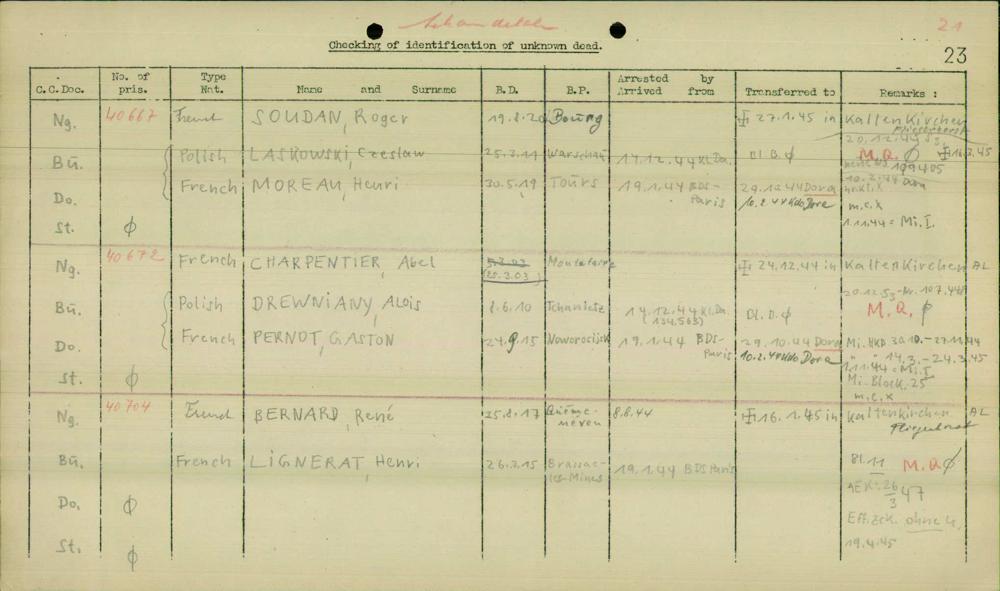 21
Checking of identification of unknown dead.
23
C.C.Doc. No. of pris. Type Nat. Name and Surname B.D. B.P. Arrested by Arrived from Transferred to Remarks :
Ng. 40667 French SOUDAN, Roger 19.8.20 Bourg 27.1.45 in Kaltenkirchen
20.12.44
Bü. Polish LASKOWSKI, Czeslaw 25.2.11 Warschau 14.12.44 Kl.Da. Bl. B. ∅ M.Q. ∅ 16.3.45
Do. French MOREAU, Henri 30.5.19 Tours 19.1.44 BDS-Paris 29.10.44 Dora
10.2.44 Kdo Dora m.e.x
St. ∅ 1.11.44 = Mi. I.
Ng. 40672 French CHARPENTIER, Abel 5.3.03 Montataire 24.12.44 in Kaltenkirchen AL
(25.3.03)
Bü. Polish DREWNIANY, Alois 8.6.10 14.12.44 Kl.Da. Bl. B. ∅ M.Q. ∅
(134563)
Do. French PERNOT, GASTON 24.9.15 Noworocijsk 19.1.44 BDS-Paris 29.10.44 Dora Mi. HKB 30.10. – 27.11.44
10.2.44 Kdo Dora " " 14.3. – 24.3.45
1.11.44 = Mi. I
St. ∅ Mi. Block. 25
m.e.x
Ng. 40704 French BERNARD, René 25.8.17 8.8.44 16.1.45 in Kaltenkirchen AL
Bü. French LIGNERAT, Henri 26.2.15 Brassac-les-Mines 19.1.44 BDS Paris Bl. 11 M.Q ∅
26/3 47
Do. ∅ Eff. zck. ohne
St. ∅ 19.4.45